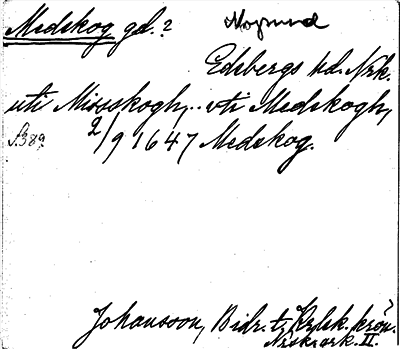 Medskog gd.?
Edsbergs hd. Nrk.
uti Missskogh, .. vti Medskogh,
s. 389. 2/9 1647 Medskog.
Johansson, Bidr. t. Rytsk. krön.
Nrsk. ark. II.